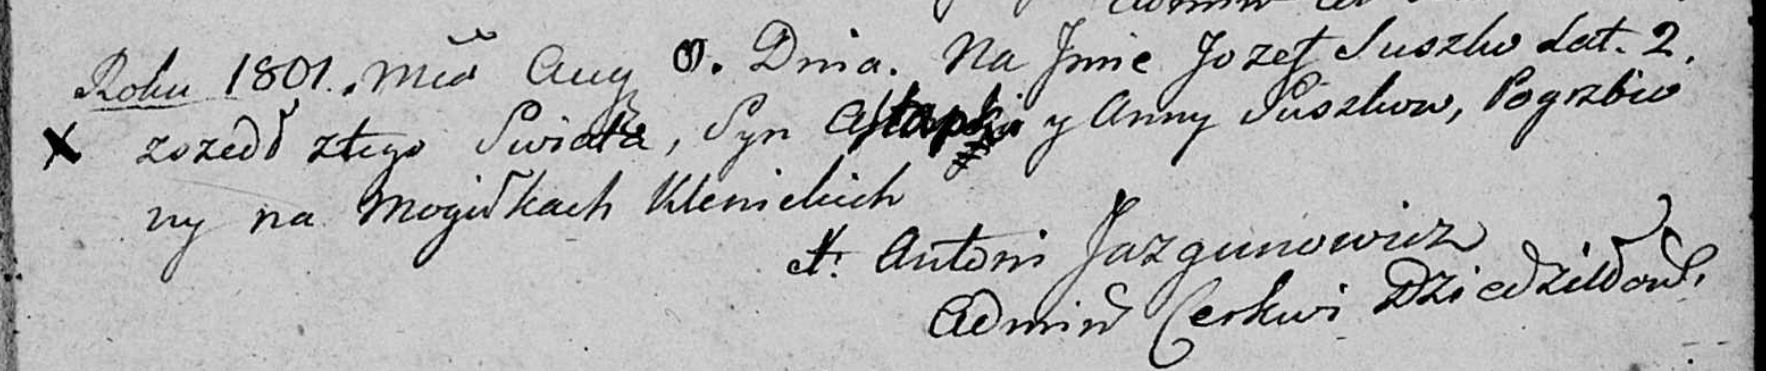 Roku 1801. Mca Aug 8. Dnia. Na Jmie Jozef Suszko Lat. 2.
zszedł z tego Swiata, Syn Astapka y Anny Suszkow, Pogrzbio
ny na Mogiłkach Klenickich
X. Antoni Jazgunowicz
Admin Cerkwi Dziedziłow.